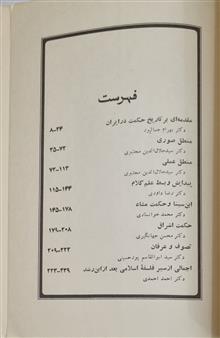 فهرست
مقدمه‌ای بر تاریخ حکمت در ایران
دکتر بهرام جمالپور ۸-۳۴
منطق صوری
دکتر سید جلال‌الدین مجتبوی ۳۵-۷۲
منطق عملی
دکتر سید جلال‌الدین مجتبوی ۷۳-۱۱۳
پیدایش و بسط علم کلام
دکتر رضا داوری ۱۱۵-۱۴۴
ابن‌سینا و حکمت مشاء
دکتر محمد خوانساری ۱۴۵-۱۷۸
حکمت اشراق
دکتر محسن جهانگیری ۱۷۹-۲۰۸
تصوف و عرفان
دکتر سید ابوالقاسم پورحسینی ۲۰۹-۲۳۲
اجمالی از سیر فلسفهٔ اسلامی بعد از ابن‌رشد
دکتر احمد احمدی ۲۳۳-۲۳۹